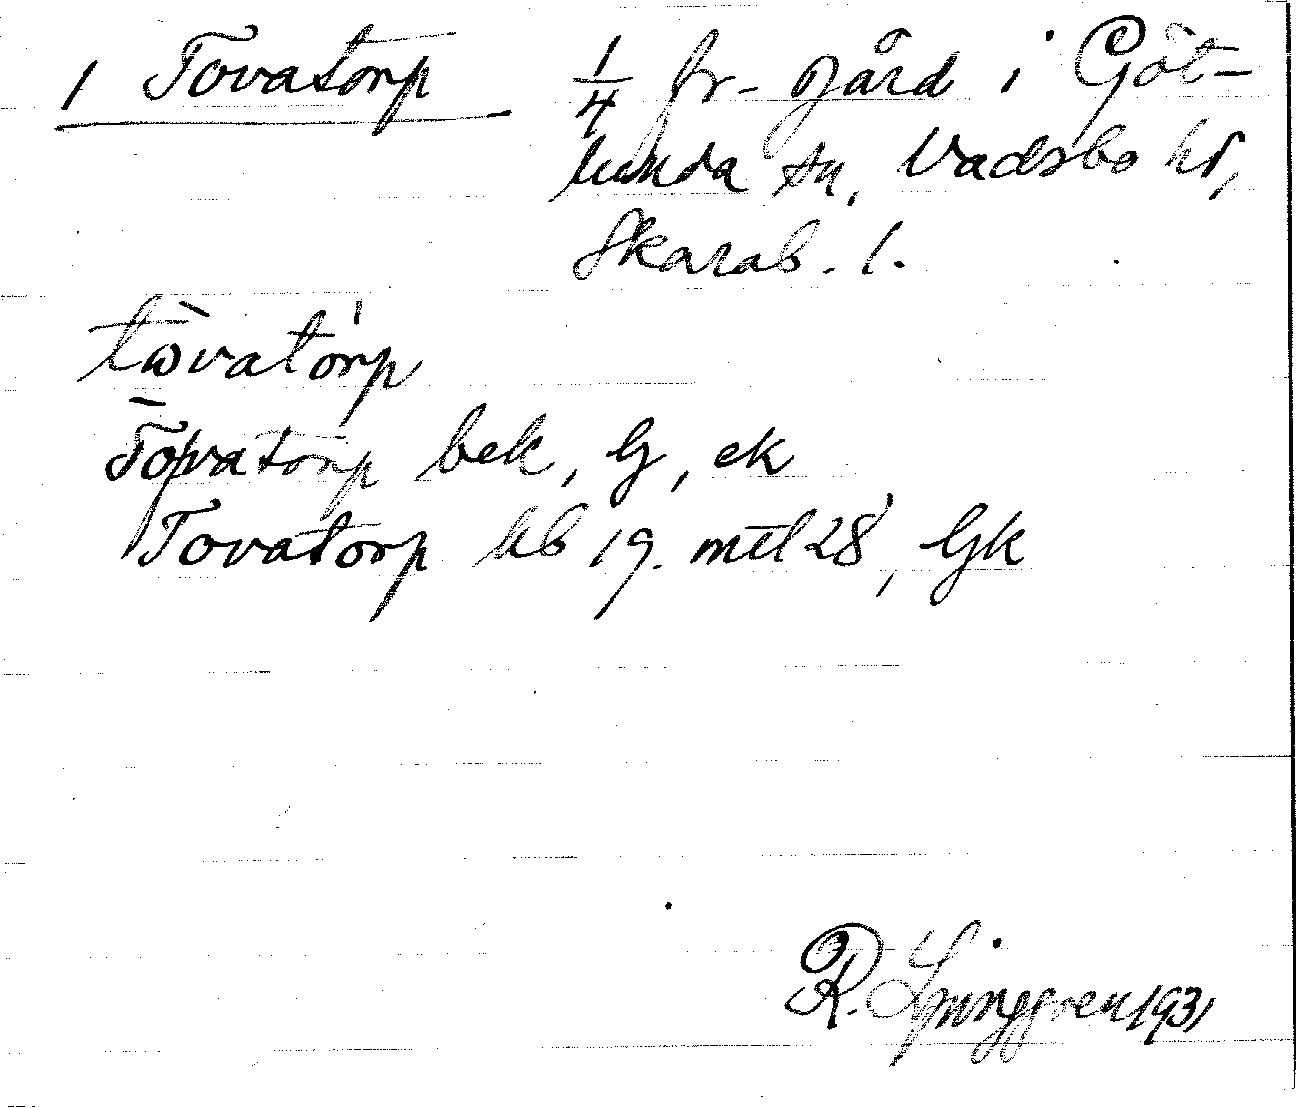 1 Tovatorp 1/4 fr. gård i Göt-
lunda sn, Vadsbo hd,
Skarab. l.
tòvatórp
Tovatorp bek, G, ek
Tovatorp kb 19. mtl 28, Gk
R. Ljunggren 1931